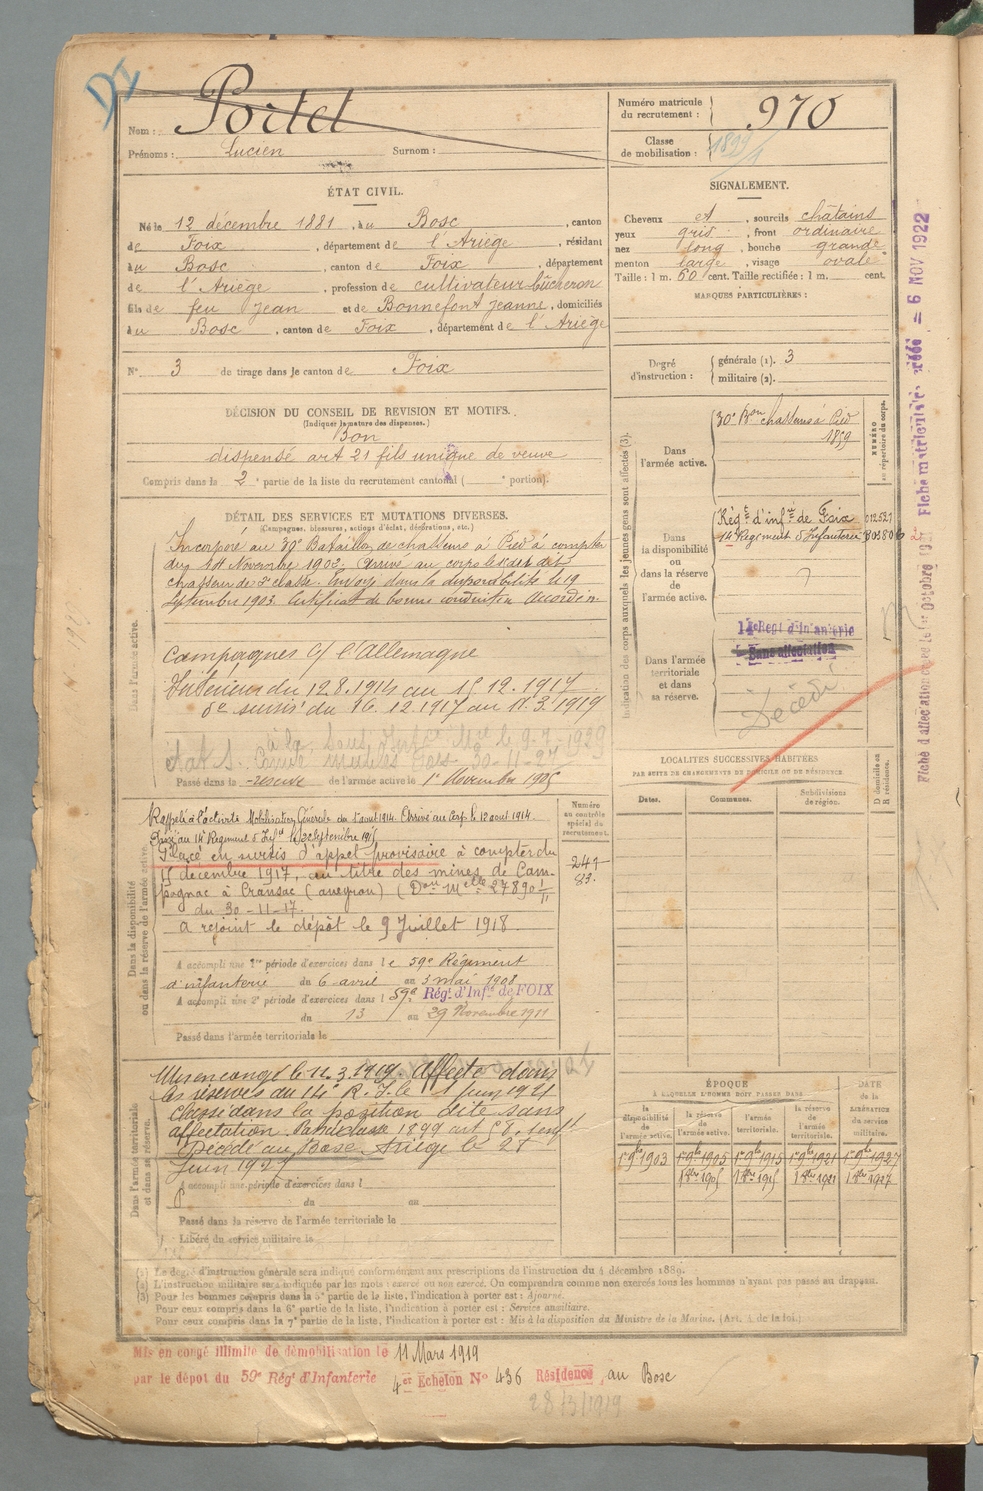 DI
Nom : Portet
Prénoms : Lucien Surnom :
Numéro matricule du recrutement : 970
Classe de mobilisation : 1899/1
ÉTAT CIVIL.
Né le 12 décembre 1881, à u Bosc, canton
de Foix, département de l'Ariège, résidant
à u Bosc, canton de Foix, département
de l'Ariège, profession de cultivateur-bûcheron
fils de feu Jean et de Bonnefont Jeanne, domiciliés
à u Bosc, canton de Foix, département de l'Ariège
N° 3 de tirage dans le canton de Foix
SIGNALEMENT.
Cheveux et, sourcils châtains
yeux gris, front ordinaire
nez long, bouche grande
menton large, visage ovale
Taille : 1 m. 60 cent. Taille rectifiée : 1 m. cent.
MARQUES PARTICULIÈRES :
Degré d'instruction : générale (1). 3
militaire (2).
DÉCISION DU CONSEIL DE REVISION ET MOTIFS.
(Indiquer la nature des dispenses.)
Bon
dispensé art 21 fils unique de veuve
Compris dans la 2e partie de la liste du recrutement cantonal ( e portion).
DÉTAIL DES SERVICES ET MUTATIONS DIVERSES.
(Campagnes, blessures, actions d'éclat, décorations, etc.)
Dans l'armée active.
Incorporé au 30e Bataillon de chasseurs à Pied à compter
du Novembre 1902. Arrivé au corps le dit
chasseur de 2e classe. Envoyé dans la disponibilité le 19
Septembre 1903. Certificat de bonne conduite Accordé
Campagnes c/ l'Allemagne
Intérieur du 12.8.1914 au 15.12.1917
du 16.12.1917 au 11.3.1919
Passé dans la réserve de l'armée active le 1er Novembre 1905
Dans la disponibilité ou dans la réserve de l'armée active.
Rappelé à l'activité Mobilisation Générale du août 1914. Arrivé au corps le 12 aout 1914.
au 14e Régiment d'Infie le Septembre
Placé en sursis d'appel provisoire à compter du
15 décembre 1917, au titre des mines de Cam-
pagnac à Cransac (Aveyron) (Don Mlle 27890 1/11
du 30-11-17.
a rejoint le dépôt le 9 Juillet 1918
A accompli une 1re période d'exercices dans le 59e Régiment
d'infanterie du 6 avril au 3 mai 1908
A accompli une 2e période d'exercices dans l 59e Régt. d'Infie de FOIX
du 13 au 29 Novembre 1911
Passé dans l'armée territoriale le
Numéro au contrôle spécial du recrutement.
83.
Dans l'armée territoriale et dans sa réserve.
Mis en congé le 11.3.1919. Affecté dans
les réserves du 14e R.I. le 1 Juin 1921
Classé dans la position dite sans
affectation. Passé classe 1899 art 58, 1 enft
Décédé au Bosc Ariège le 27
Juin 192
A accompli une période d'exercices dans l
du au
Passé dans la réserve de l'armée territoriale le
Libéré du service militaire le
Indication des corps auxquels les jeunes gens sont affectés (3).
NUMÉRO au répertoire du corps.
Dans l'armée active.
30e Bon chasseurs à Pied
1859
Dans la disponibilité ou dans la réserve de l'armée active.
Régt d'infie de Foix 012527
14 Régiment d'Infanterie
Dans l'armée territoriale et dans sa réserve.
14e Régt d'Infanterie
Sans affectation
Décédé
LOCALITÉS SUCCESSIVES HABITÉES
PAR SUITE DE CHANGEMENTS DE DOMICILE OU DE RÉSIDENCE.
Dates. Communes. Subdivisions de région. D domicile ou R résidence.
ÉPOQUE
À LAQUELLE L'HOMME DOIT PASSER DANS
la disponibilité de l'armée active. la réserve de l'armée active. l'armée territoriale. la réserve de l'armée territoriale.
DATE de la LIBÉRATION du service militaire.
1er 9bre 1903 1er 9bre 1905 1er 9bre 1915 1er 9bre 1921 1er 9bre 1927
(1) Le degré d'instruction générale sera indiqué conformément aux prescriptions de l'instruction du 4 décembre 1889.
(2) L'instruction militaire sera indiquée par les mots : exercé ou non exercé. On comprendra comme non exercés tous les hommes n'ayant pas passé au drapeau.
(3) Pour les hommes compris dans la 5e partie de la liste, l'indication à porter est : Ajourné.
Pour ceux compris dans la 6e partie de la liste, l'indication à porter est : Service auxiliaire.
Pour ceux compris dans la 7e partie de la liste, l'indication à porter est : Mis à la disposition du Ministre de la Marine. (Art. 4 de la loi.)
Mis en congé illimité de démobilisation le 11 Mars 1919
par le dépôt du 59e Régt d'Infanterie 4er Echelon N° 436 Résidence au Bosc
28/3/1919
Fiche d'affectation créée le 1er Octobre Fiche matricule créée = 6 NOV 1922